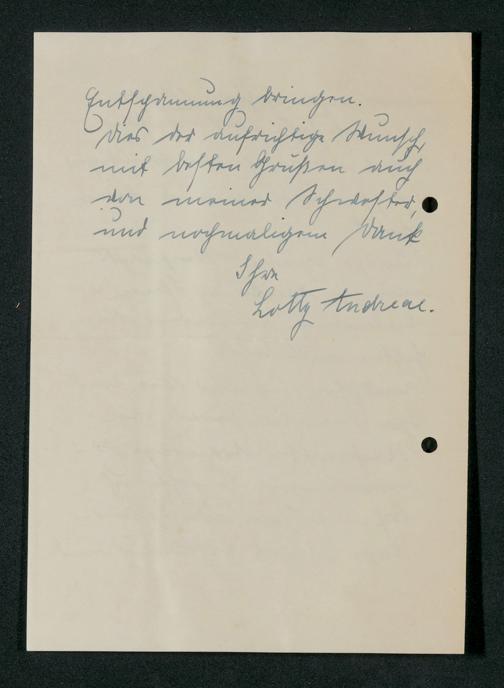 Entspannung bringen.
Dies der aufrichtige Wunsch,
mit besten Grüßen auch
von meiner Schwester,
und nochmaligem Dank
Ihre
Lotty Andreae.